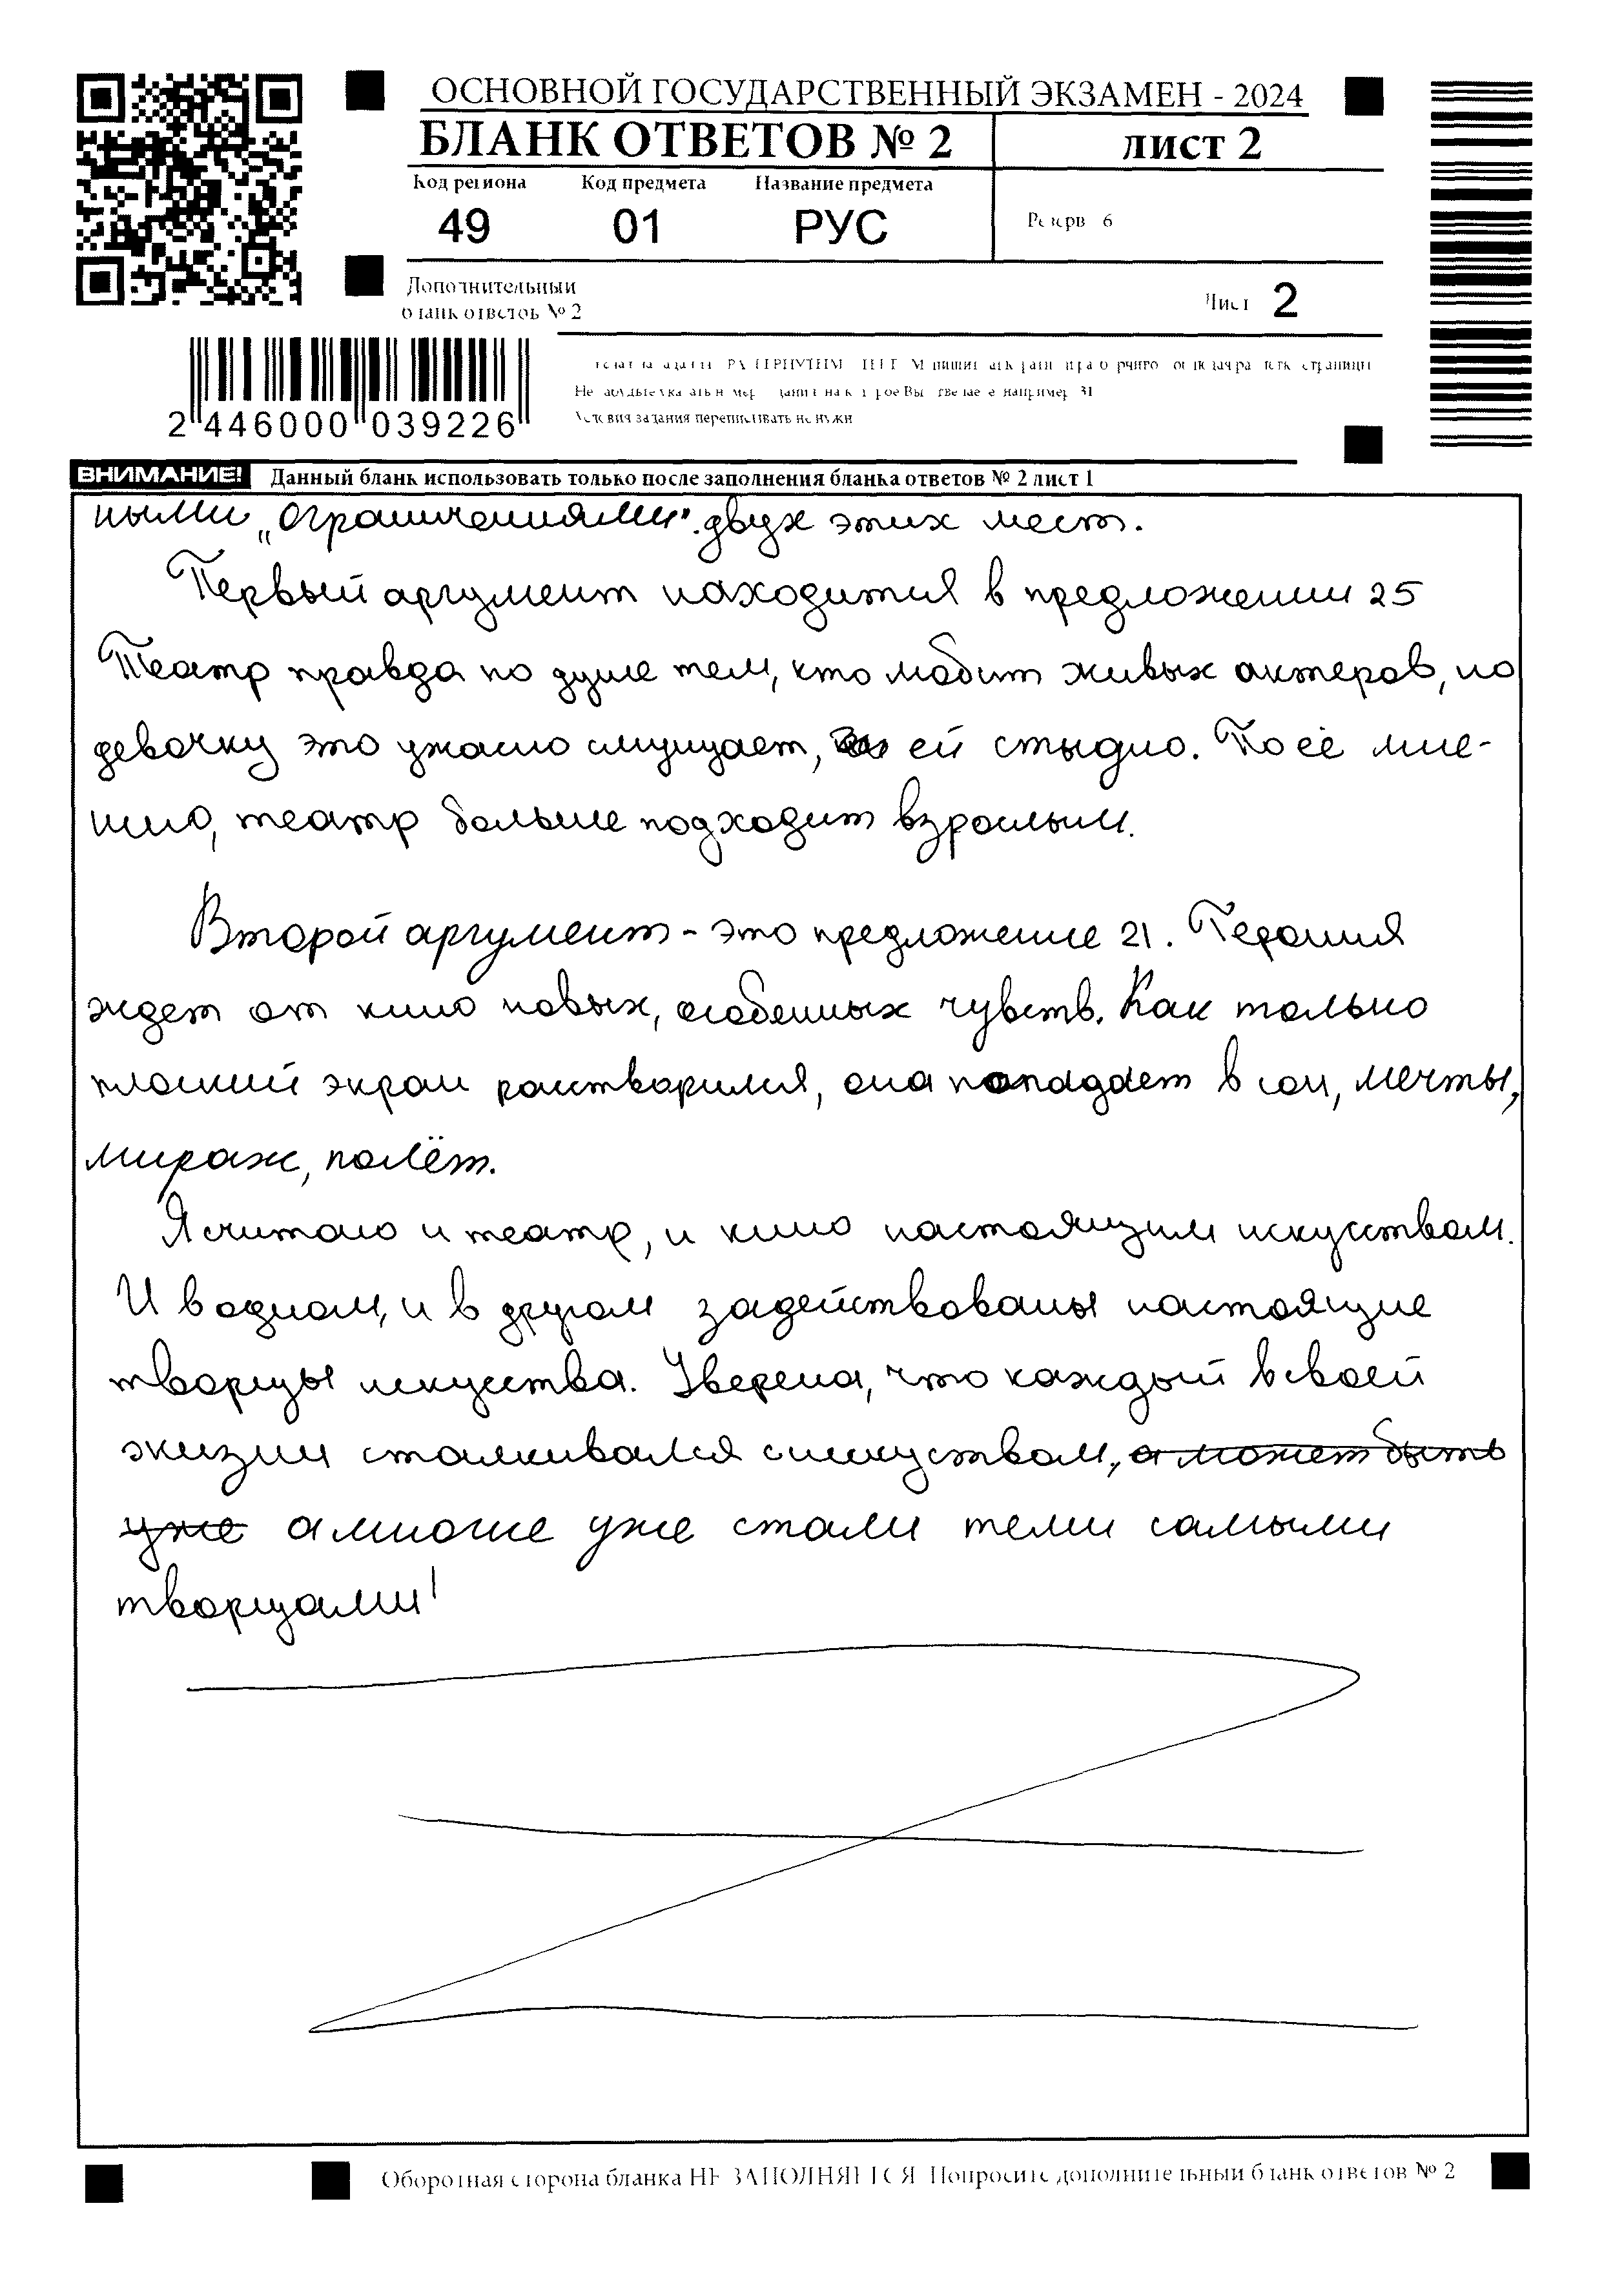 ОСНОВНОЙ ГОСУДАРСТВЕННЫЙ ЭКЗАМЕН - 2024
БЛАНК ОТВЕТОВ № 2
лист 2
Код региона Код предмета Название предмета
49 01 РУС
Резерв 6
Дополнительный
бланк ответов № 2
Лист 2
2 446000 039226
Условия задания переписывать не нужн
ВНИМАНИЕ! Данный бланк использовать только после заполнения бланка ответов № 2 лист 1
ными „ограничениями". двух этих мест.
Первый аргумент находится в предложении 25
Театр правда по душе тем, кто любит живых актеров, но
девочку это ужасно смущает, ей стыдно. По её мне-
нию, театр больше подходит взрослым.
Второй аргумент - это предложение 21. Героиня
ждет от кино новых, особенных чувств. Как только
плоский экран растворился, она попадает в сон, мечты,
мираж, полёт.
Я считаю и театр, и кино настоящим искуством.
И в одном, и в другом задействованы настоящие
творцы искуства. Уверена, что каждый в своей
жизни сталкивался с искуством, а может быть
уже а многие уже стали теми самыми
творцами!
Оборотная сторона бланка НЕ ЗАПОЛНЯЕТСЯ Попросите дополнительный бланк ответов № 2